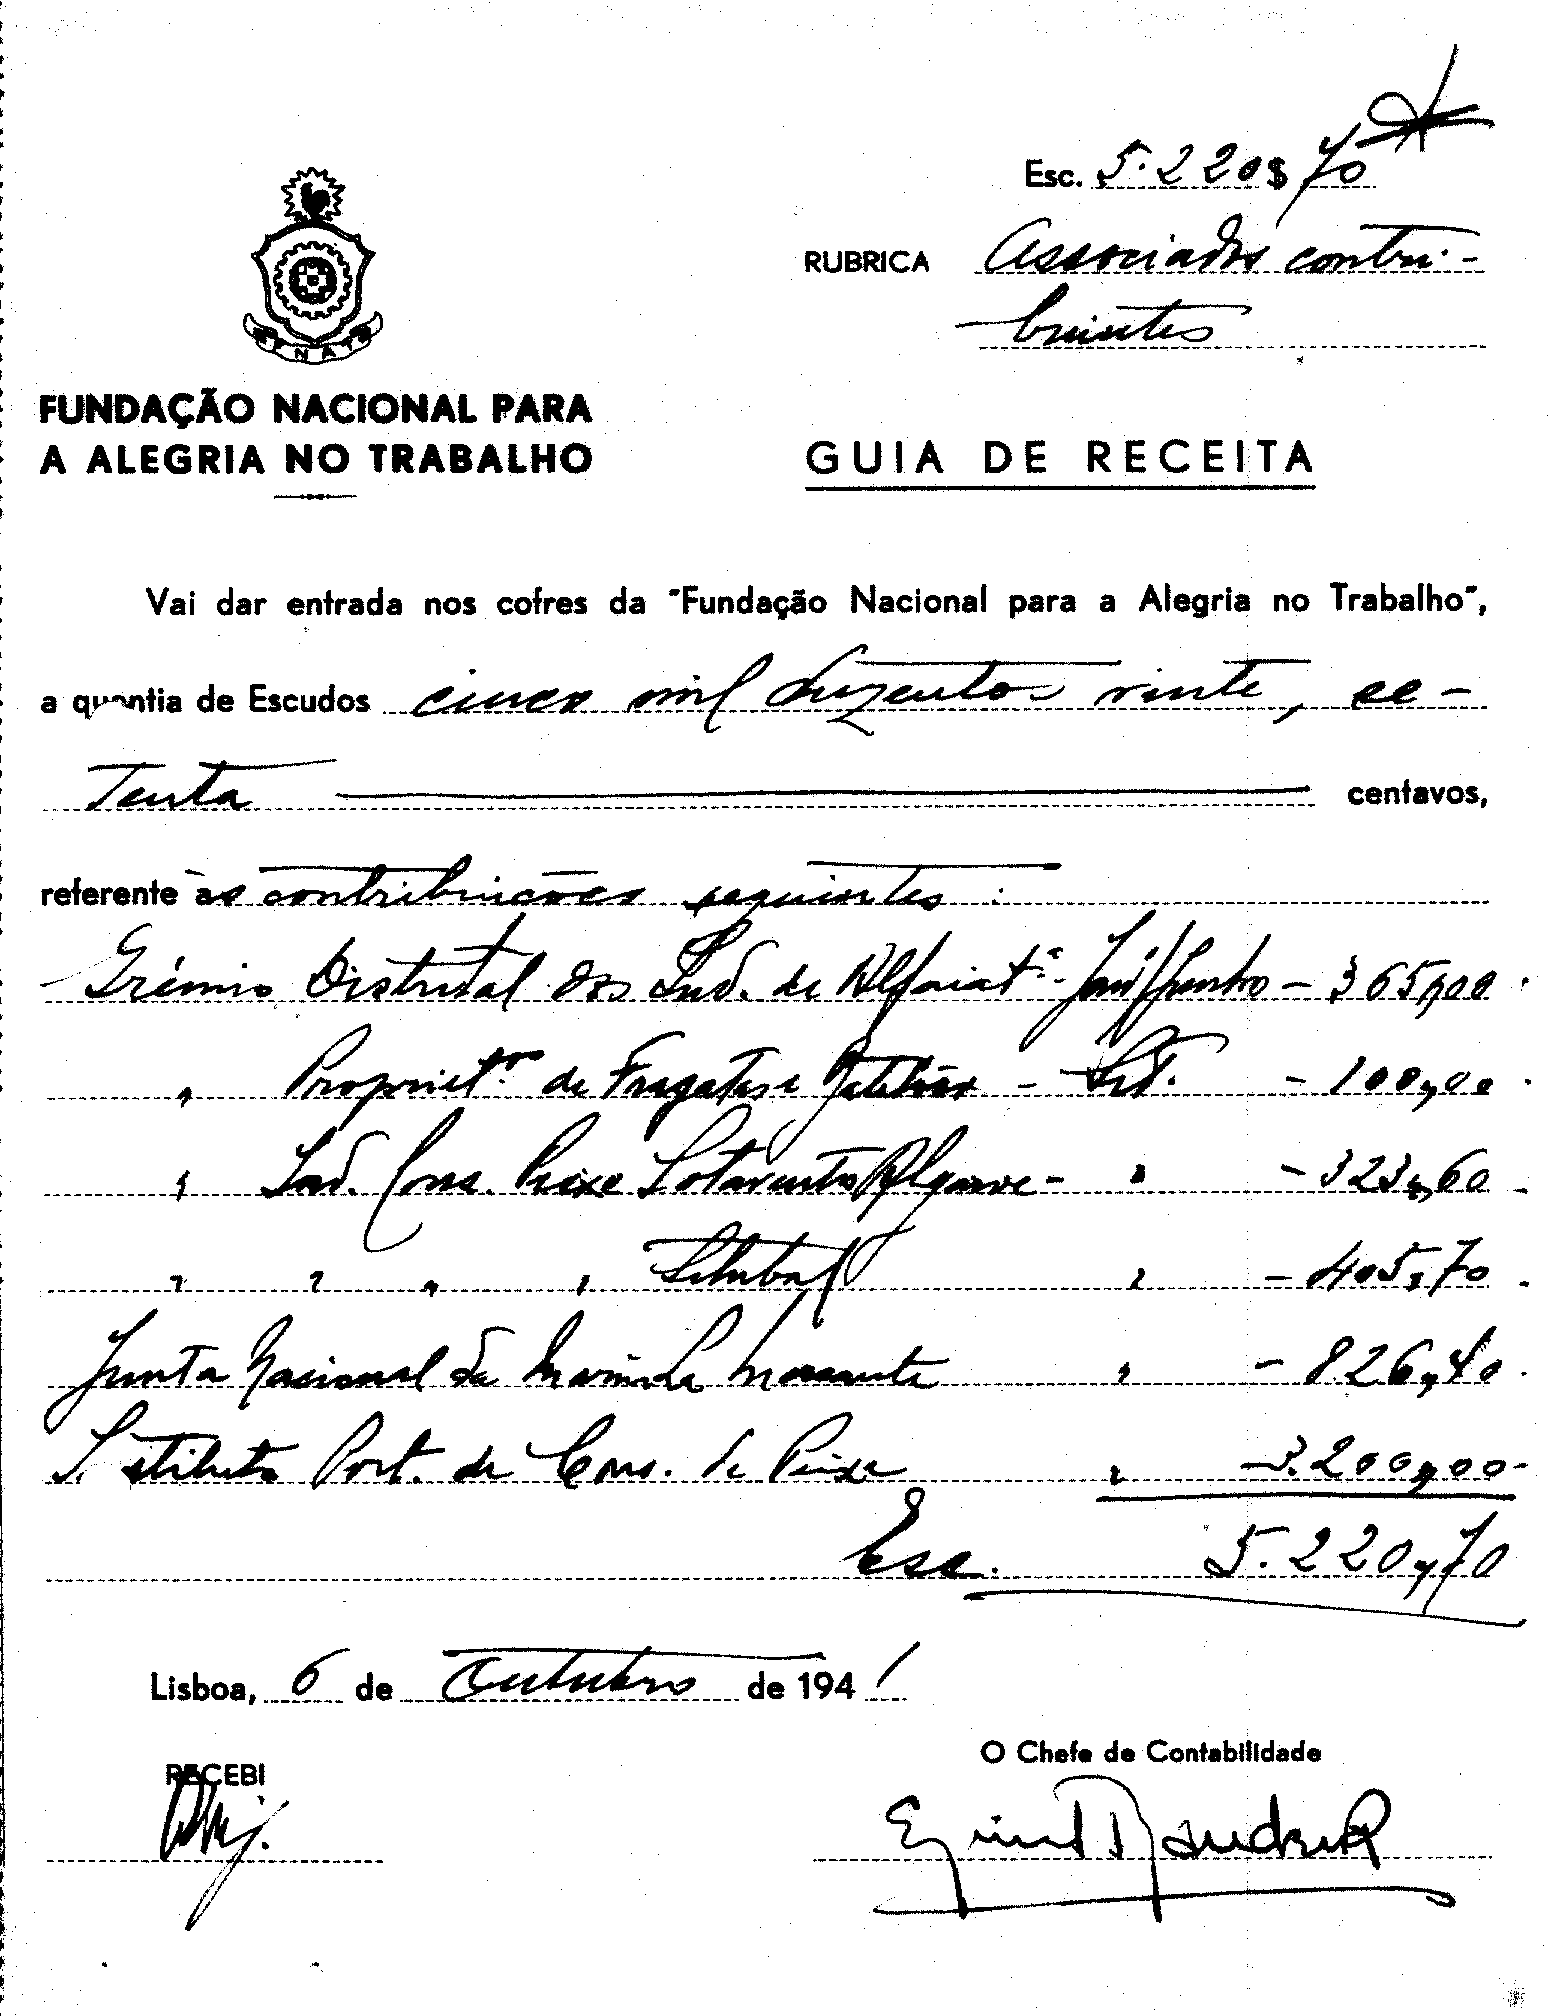 Esc. 5.220$70
RUBRICA Associados contri-
buintes
FNAT
FUNDAÇÃO NACIONAL PARA
A ALEGRIA NO TRABALHO
GUIA DE RECEITA
Vai dar entrada nos cofres da "Fundação Nacional para a Alegria no Trabalho",
a quantia de Escudos cinco mil duzentos vinte, se-
tenta centavos,
referente às contribuições seguintes:
Grémio Distrital dos Ind. de Alfaiat.ª - Jan/Junho - 365,00
" Propriet.ros de Fragatas e - Set. - 100,00
" Ind. Cons. Peixe Sotavento Algarve - " - 323,60
" " " " Setubal " - 405,70
Junta Nacional da Marinha Mercante " - 826,40
Instituto Port. de Cons. de Peixe " - 3.200,00
Esc. 5.220,70
Lisboa, 6 de Outubro de 1941
O Chefe de Contabilidade
RECEBI